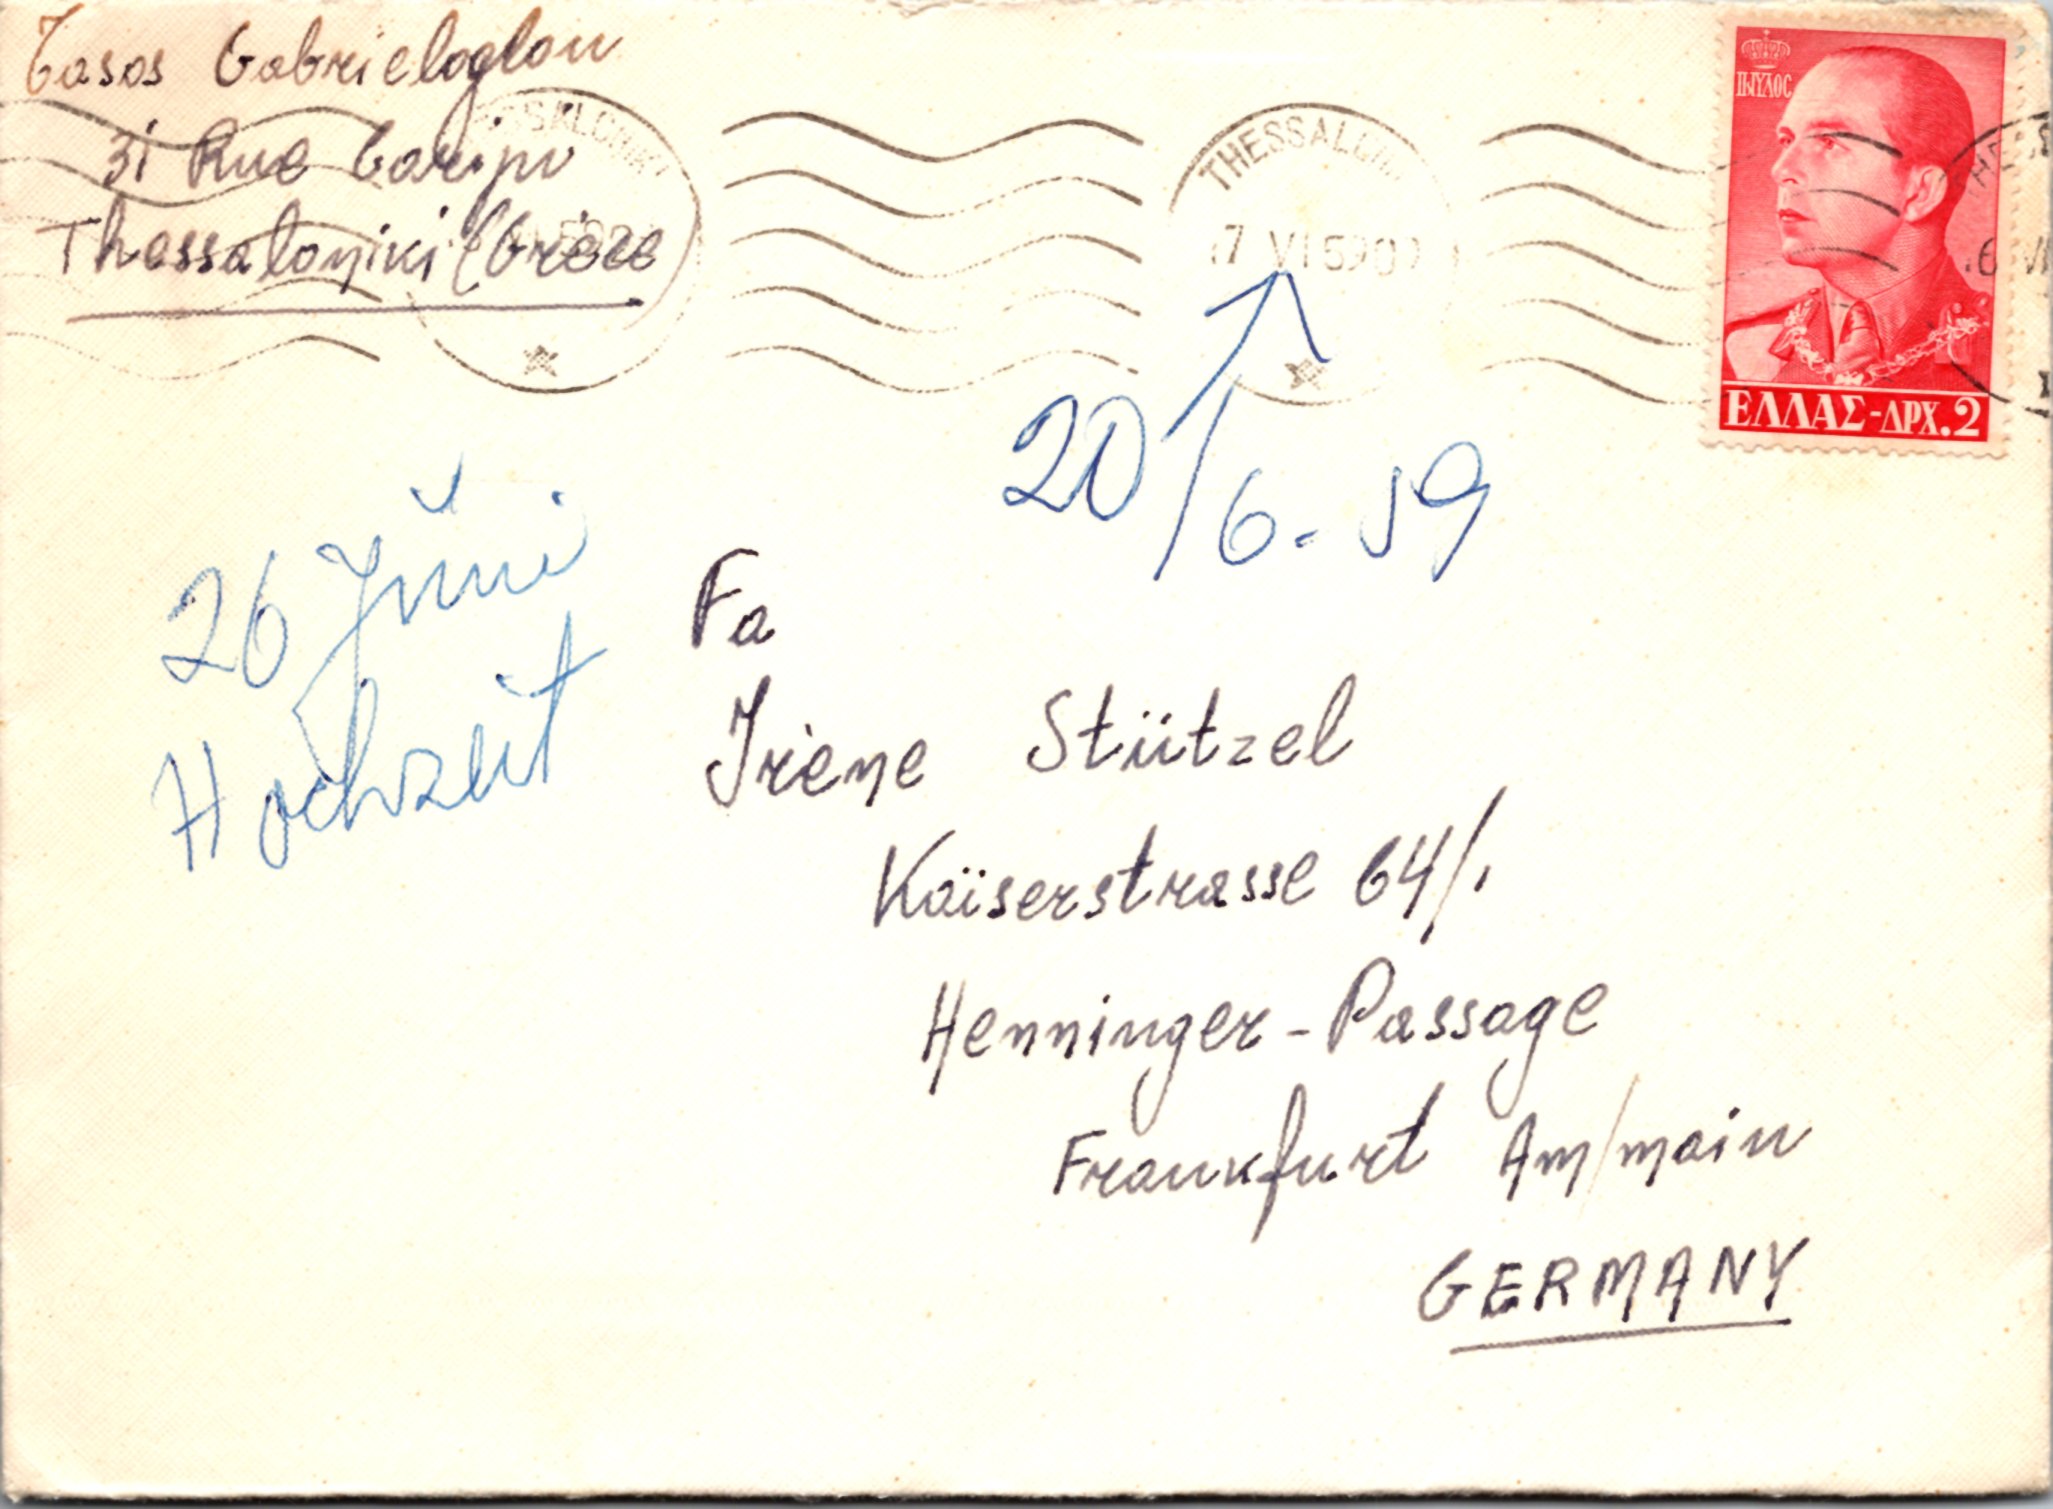 Tasos Gabrieloglou
31 Rue
Thessaloniki (Grèce
THESSALONIKI
THESSALONI
7 VI 59
ΠΑΥΛΟΣ
ΕΛΛΑΣ-ΔΡΧ.2
20/6.59
26 Juni
Hochzeit
Fa
Irène Stützel
Kaïserstrasse 64/1
Henninger-Passage
Frankfurt Am/main
GERMANY